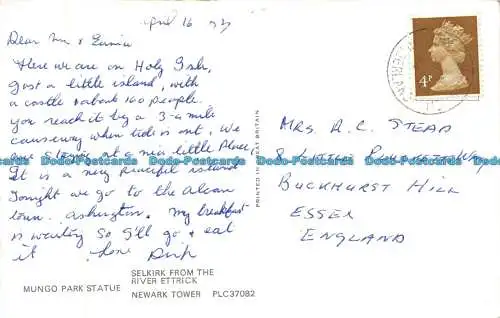 April 16
Dear Mum &
Here we are on Holy Isle,
Just a little island, with
a castle & about 160 people.
you reach it by a 3-a mile
causeway when tide is out, We
are staying at a nice little Place,
It is a very peaceful island
Tonight we go to the
town. Ashington. My breakfast
is waiting so I'll go & eat
it love
MUNGO PARK STATUE
SELKIRK FROM THE
RIVER ETTRICK
NEWARK TOWER PLC37082
PRINTED IN GREAT BRITAIN
4P
MRS. A.C. STEAD
8 LITTLE
BUCKHURST HILL
ESSEX
ENGLAND
Dodo-Postcards Dodo-Postcards Dodo-Postcards Dodo-Postcards